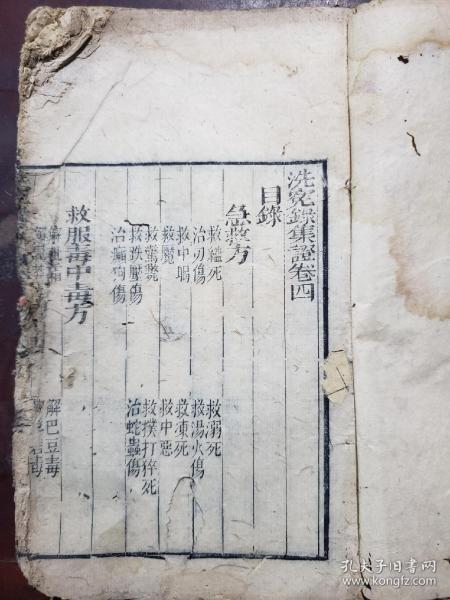 洗冤錄集證卷四
目錄
急救方
救縊死
救溺死
治刃傷
救湯火傷
救中暍
救凍死
救魘
救中惡
救驚斃
救撲打猝死
救跌壓傷
治蛇蟲傷
治瘋狗傷
救服毒中毒方
解巴豆毒
毒
孔夫子旧书网
www.kongfz.com